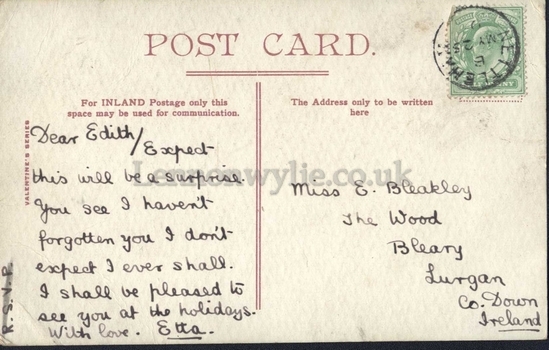 POST CARD.
For INLAND Postage only this
space may be used for communication.
The Address only to be written
here
VALENTINE'S SERIES
Dear Edith/
Expect
this will be a surprise.
You see I haven't
forgotten you I don't
expect I ever shall.
I shall be pleased to
see you at the holidays.
With love. Etta.
R.S.V.P.
Miss E. Bleakley
The Wood
Bleary
Lurgan
Co. Down
Ireland
Lennonwylie.co.uk